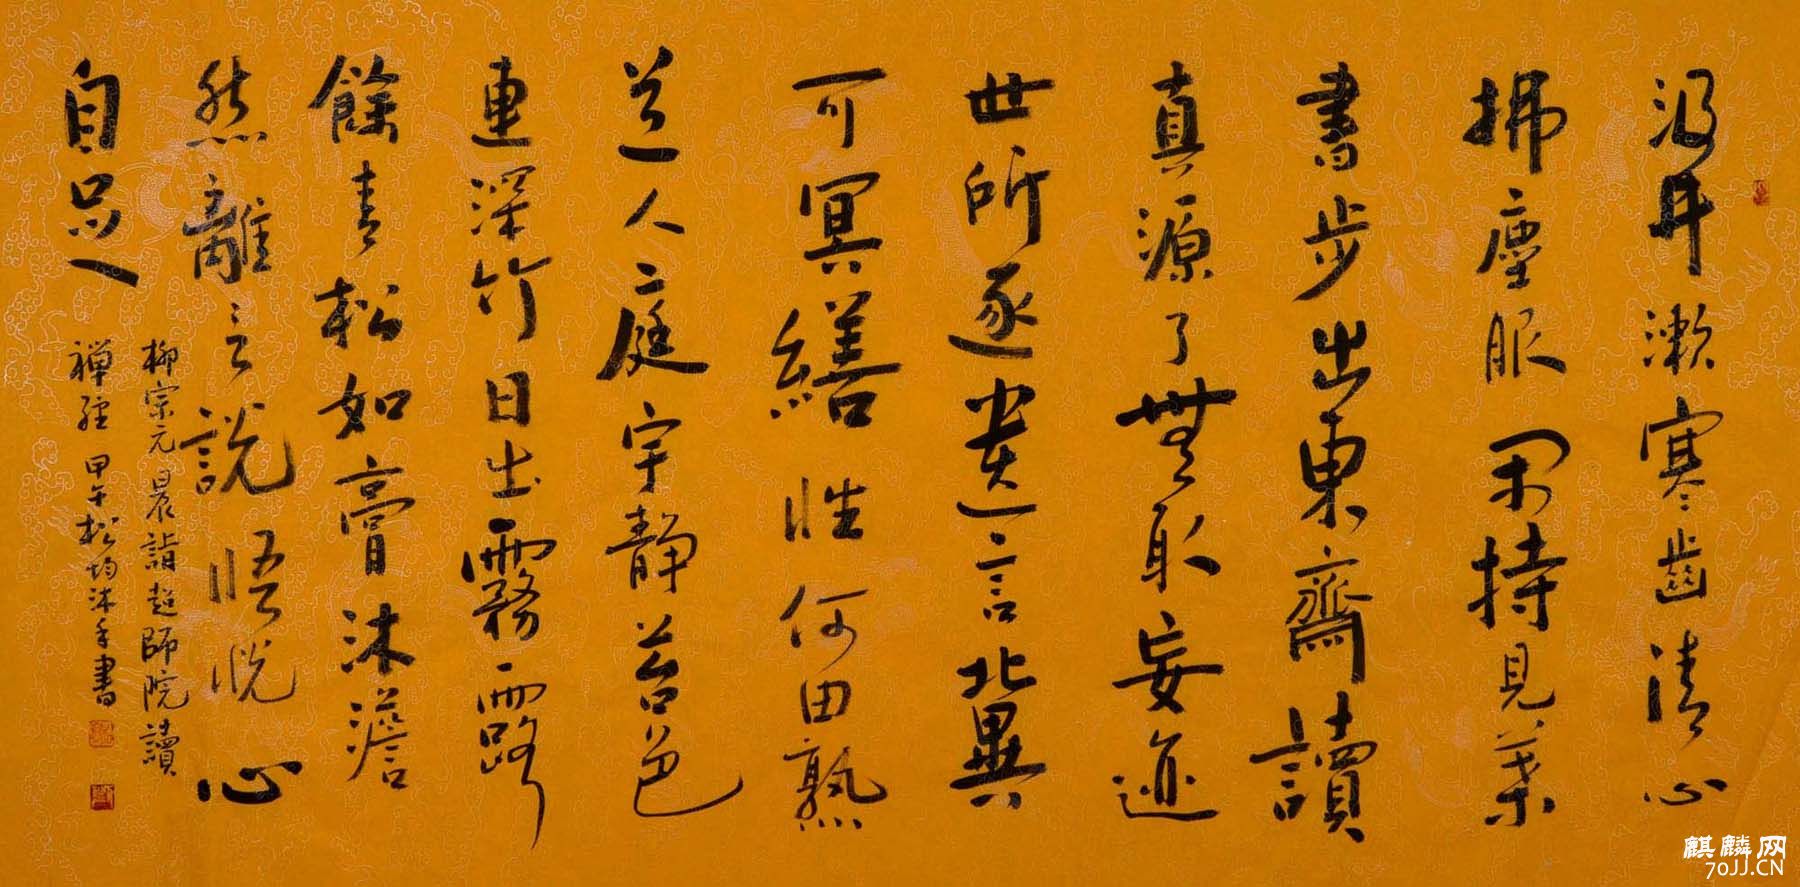 汲井漱寒齒清心
拂塵服閑持貝葉
書步出東齋讀
真源了無取妄迹
世所逐遺言冀
可冥繕性何由熟
道人庭宇靜苔色
連深竹日出霧露
餘青松如膏沐澹
然離言說悟悅心
自足
柳宗元晨詣超師院讀
禪經甲午松均沐手書
麒麟网
70JJ.CN